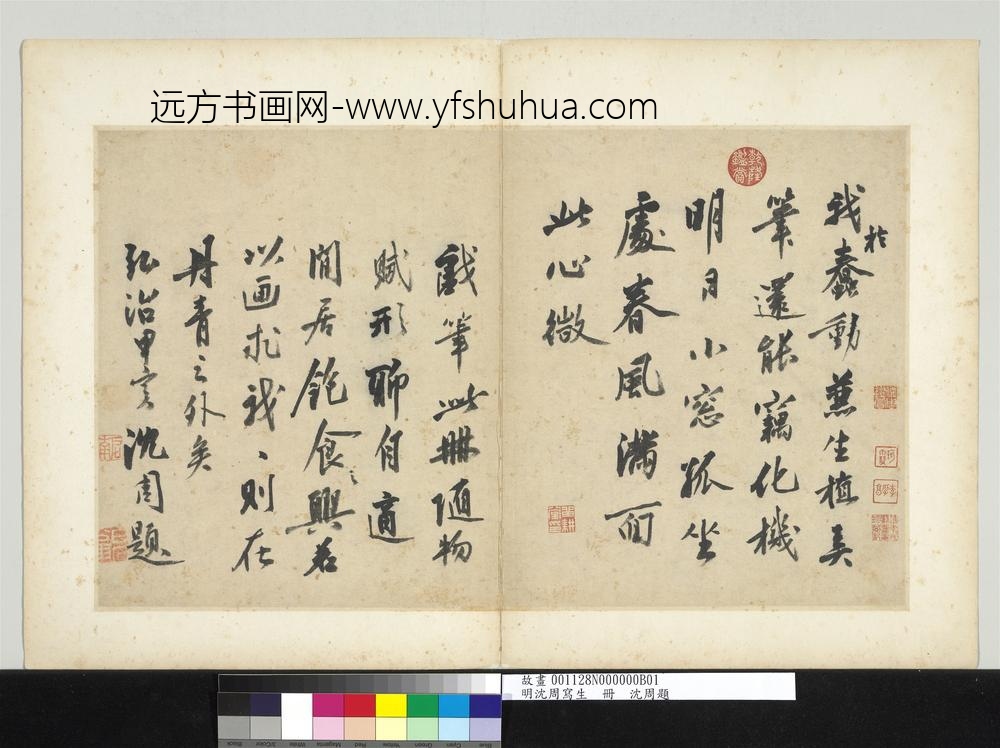 远方书画网-www.yfshuhua.com
乾隆鑑賞
我於蠢動兼生植弄
筆還能竊化機
明月小窓孤坐
處春風滿面
此心微
戲筆此冊隨物
賦形聊自適
閒居飽食之興若
以画求我、則在
丹青之外矣
弘治甲寅沈周題
故畫 001128N000000B01
明沈周寫生 冊 沈周題
Black
3/Color
White
Magenta
Red
Yellow
Green
Cyan
Blue